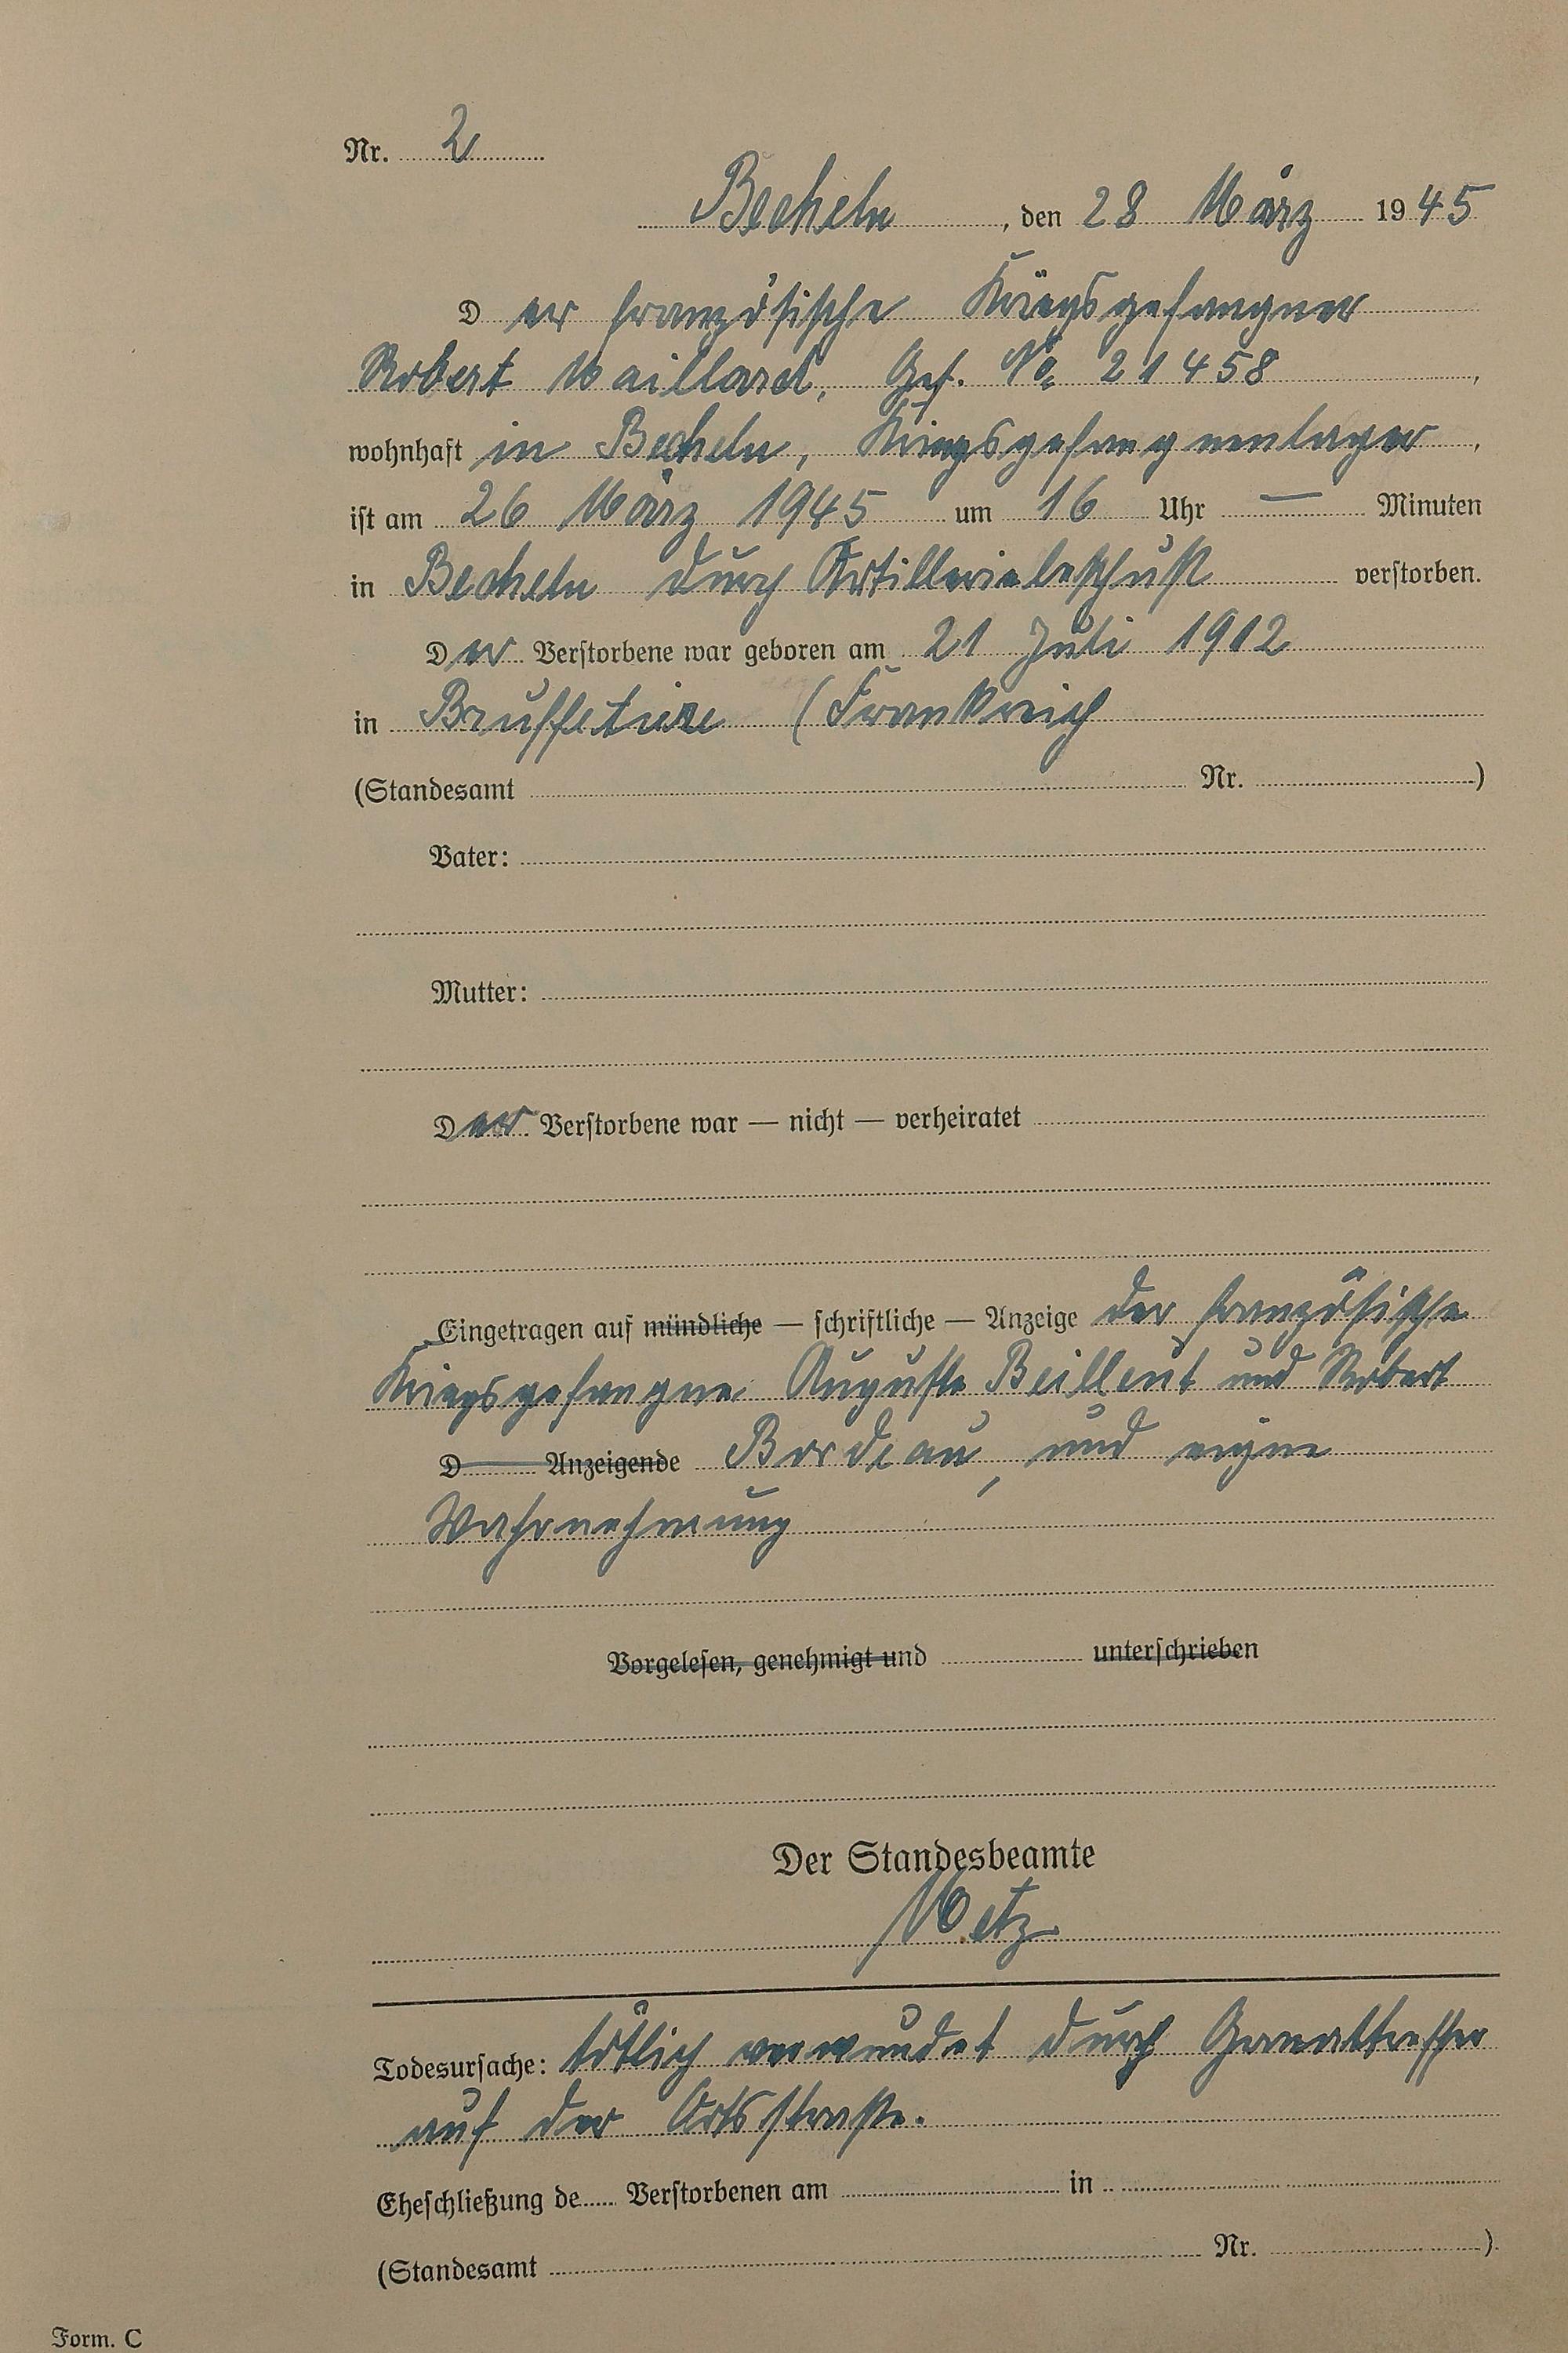 Nr. 2
Becheln, den 28 März 1945
Der französische Kriegsgefangner
Robert Maillard, Gef. No. 21458,
wohnhaft in Becheln, Kriegsgefangnenlager,
ist am 26 März 1945 um 16 Uhr — Minuten
in Becheln durch Artilleriebeschuß verstorben.
Der Verstorbene war geboren am 21 Juli 1912
in Bruffetiere (Frankreich
(Standesamt Nr. )
Vater:
Mutter:
Der Verstorbene war — nicht — verheiratet
Eingetragen auf mündliche — schriftliche — Anzeige der französische
Kriegsgefangne Auguste Beillent und Robert
D Anzeigende Bordeau, und eigne
Wahrnehmung
Vorgelesen, genehmigt und unterschrieben
Der Standesbeamte
Metz
Todesursache: tötlich verwundet durch Granattreffer
auf der Ortsstraße.
Eheschließung de Verstorbenen am in
(Standesamt Nr. )
Form. C